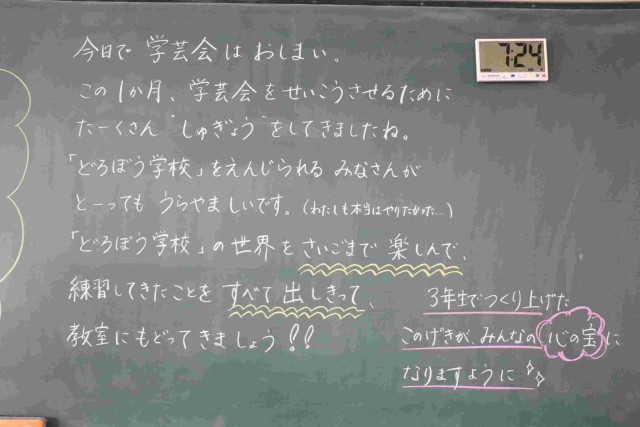 今日で 学芸会は おしまい。
この1か月、学芸会をせいこうさせるために
たーくさん "しゅぎょう"をしてきましたね。
「どろぼう学校」をえんじられる みなさんが
とーっても うらやましいです。(わたしも本当はやりたかった…)
「どろぼう学校」の世界を さいごまで 楽しんで、
練習してきたことを すべて 出しきって、
教室にもどってきましょう!!
3年生でつくり上げた
このげきが、みんなの 心の宝 に
なりますように
7:24